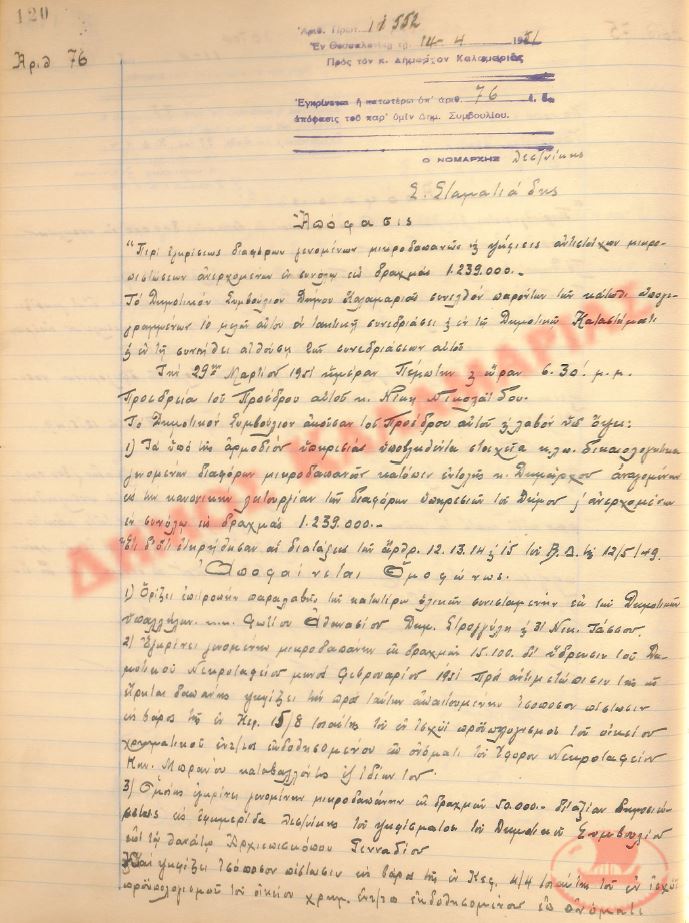 120
Ἀριθ. Πρωτ. 11552
Ἐν Θεσσαλονίκῃ τῇ 14-4 1951
Πρὸς τὸν κ. Δήμαρχον Καλαμαριᾶς
Ἀριθ 76
Ἐγκρίνεται ἡ κατωτέρω ὑπ' ἀριθ. 76 ἐ. ἔ.
ἀπόφασις τοῦ παρ' ὑμῖν Δημ. Συμβουλίου.
Ο ΝΟΜΑΡΧΗΣ Θεσ/νίκης
Σ. Σταματιάδης
Ἀπόφασις
"Περὶ ἐγκρίσεως διαφόρων γενομένων μικροδαπανῶν & ψήφισις ἀντιστοίχων μικρο-
πιστώσεων ἀνερχομένων ἐν συνόλῳ εἰς δραχμὰς 1.239.000.-
Τὸ Δημοτικὸν Συμβούλιον Δήμου Καλαμαριᾶς συνελθὸν παρόντων τῶν κάτωθι ὑπογε-
γραμμένων 10 μελῶν αὐτοῦ ἐν τακτικῇ συνεδριάσει & ἐν τῷ Δημοτικῷ Καταστήματι
& ἐν τῇ συνήθει αἰθούσῃ τῶν συνεδριάσεων αὐτοῦ
Τὴν 29ην Μαρτίου 1951 ἡμέραν Πέμπτην & ὥραν 6.30' μ.μ.
Προεδρείᾳ τοῦ Προέδρου αὐτοῦ κ. Νικη Νικολαΐδου.
Τὸ Δημοτικὸν Συμβούλιον ἀκοῦσαν τοῦ Προέδρου αὐτοῦ & λαβὸν ὑπ' ὄψει:
1) Τὰ ὑπὸ τῆς ἁρμοδίου ὑπηρεσίας ὑποβληθέντα στοιχεῖα κ.λ.π. δικαιολογητικὰ
γενομένων διαφόρων μικροδαπανῶν κατόπιν ἐντολῆς κ. Δημάρχου ἀναγομένων
εἰς τὴν κανονικὴν λειτουργίαν τῶν διαφόρων ὑπηρεσιῶν τοῦ Δήμου & ἀνερχομένων
ἐν συνόλῳ εἰς δραχμὰς 1.239.000.-
ἐτηρήθησαν αἱ διατάξεις τῶν ἄρθρ. 12.13.14 & 15 τοῦ Β.Δ. τῆς 12/5/49.
Ἀποφαίνεται Ὁμοφώνως.
1) Ὁρίζει ἐπιτροπὴν παραλαβῆς τῶν κατωτέρω ὑλικῶν συνισταμένην ἐκ τῶν Δημοτικῶν
ὑπαλλήλων κ.κ. Φωτίου Ἀθανασίου Δημ. Στρογγύλη & Νικ. Τάσσου.
2) Ἐγκρίνει γενομένην μικροδαπάνην ἐκ δραχμῶν 15.100. δι' ὕδρευσιν τοῦ Δη-
μοτικοῦ Νεκροταφείου μηνὸς Φεβρουαρίου 1951 Πρὸς ἀντιμετώπισιν τῆς ὡς
εἴρηται δαπάνης ψηφίζει τὴν πρὸς ταύτην ἀπαιτουμένην ἰσόποσον πίστωσιν
εἰς βάρος τῆς ἐν Κεφ. 15/8 τοιαύτης τοῦ ἐν ἰσχύϊ προϋπολογισμοῦ τοῦ οἰκείου
χρηματικοῦ ἐντ/τος ἐκδοθησομένου ἐπ' ὀνόματι τοῦ Ἐφόρου Νεκροταφείου
Κων. Μπράνου καταβαλλόντος ἐξ ἰδίων του.
3) Ὁμοίως ἐγκρίνει γενομένην μικροδαπάνην ἐκ δραχμῶν 50.000.- δι' ἀξίαν δημοσιεύ-
σεως εἰς ἐφημερίδα Θεσ/νίκης τοῦ ψηφίσματος τοῦ Δημοτικοῦ Συμβουλίου
ἐπὶ τῷ θανάτῳ Ἀρχιεπισκόπου Γενναδίου
Καὶ ψηφίζει ἰσόποσον πίστωσιν εἰς βάρος τῆς ἐν Κεφ. 4/4 τοιαύτης τοῦ ἐν ἰσχύϊ
προϋπολογισμοῦ τοῦ οἰκείου χρημ. ἐντ/τος ἐκδοθησομένου ἐπ' ὀνόματι
ΔΗΜΟΣ ΚΑΛΑΜΑΡΙΑΣ